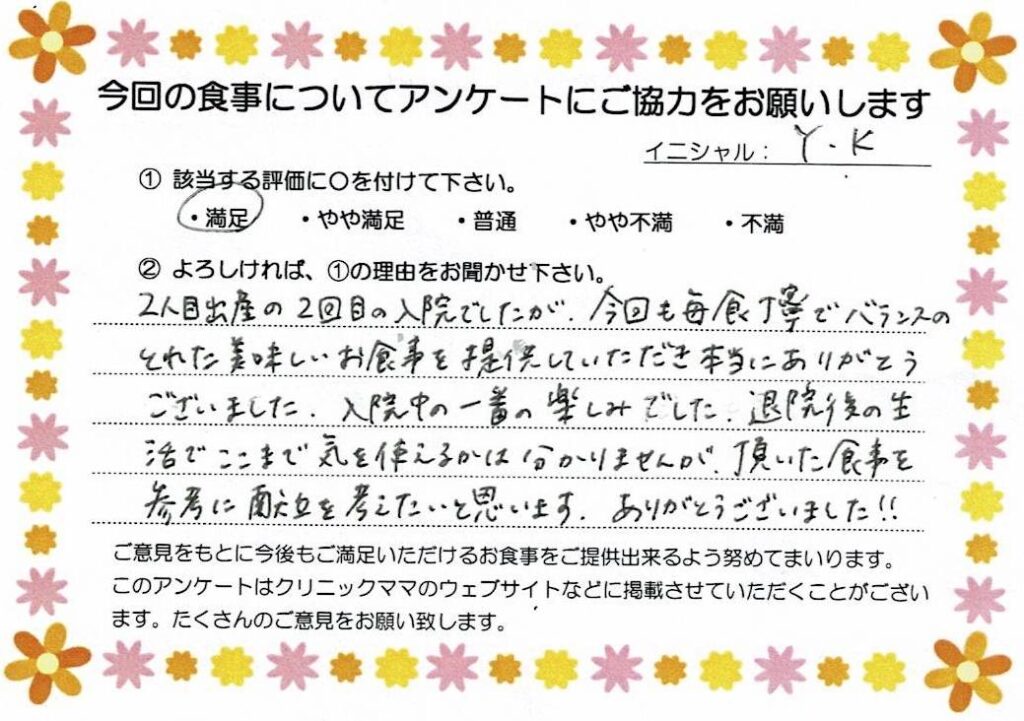 今回の食事についてアンケートにご協力をお願いします
イニシャル： Y・K
① 該当する評価に〇を付けて下さい。
・満足 ・やや満足 ・普通 ・やや不満 ・不満
② よろしければ、①の理由をお聞かせ下さい。
2人目出産の2回目の入院でしたが、今回も毎食丁寧でバランスの
とれた美味しいお食事を提供していただき本当にありがとう
ございました。入院中の一番の楽しみでした。退院後の生
活でここまで気を使えるかは分かりませんが、頂いた食事を
参考に献立を考えたいと思います。ありがとうございました!!
ご意見をもとに今後もご満足いただけるお食事をご提供出来るよう努めてまいります。
このアンケートはクリニックママのウェブサイトなどに掲載させていただくことがござい
ます。たくさんのご意見をお願い致します。